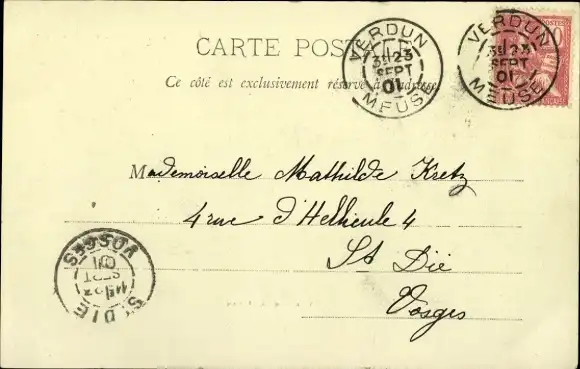 CARTE POSTALE
Ce côté est exclusivement réservé à l'adresse
VERDUN
3E 23
SEPT
01
MEUSE
VERDUN
3E 23
SEPT
01
MEUSE
POSTES
Mademoiselle Mathilde Kretz
4 rue d'Helhieule 4
St Dié
Vosges
ST DIE
SEPT
01
VOSGES